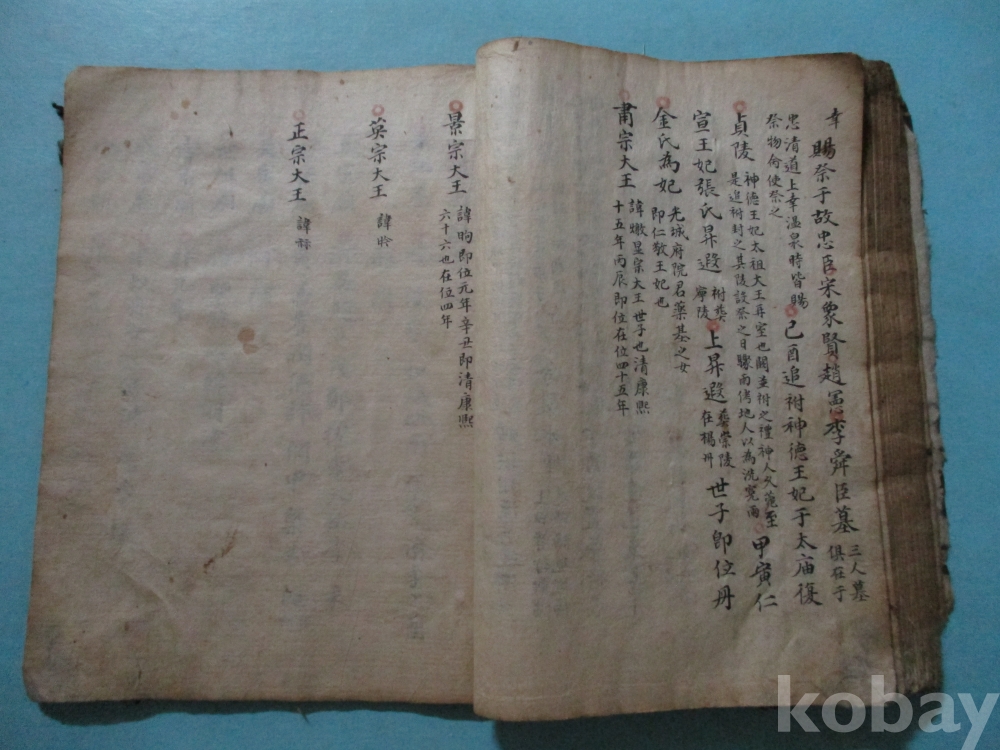 幸 賜祭于故忠臣宋象賢趙憲李舜臣墓 三人墓俱在于
忠清道上幸温泉時皆賜祭物 使祭之 己酉追祔神德王妃于太庙復
貞陵 神德王妃太祖大王再室也闕並祔之禮神人久菀至是追祔封之其陵設祭之日驟雨 地人以為洗寃雨 甲寅仁
宣王妃張氏昇遐 祔葬寧陵 上昇遐 葬崇陵在楊州 世子即位册
金氏為妃 光城府院君 基之女即仁敬王妃也
肅宗大王 諱 显宗大王世子也清康熙十五年丙辰即位在位四十五年
景宗大王 諱昀即位元年辛丑即清康熙六十六也在位四年
英宗大王 諱昑
正宗大王 諱祘
kobay